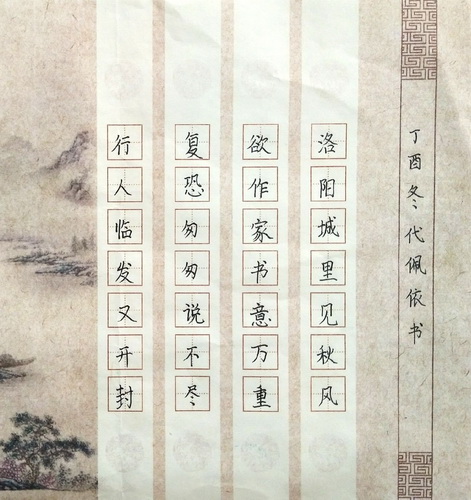 洛阳城里见秋风
欲作家书意万重
复恐匆匆说不尽
行人临发又开封
丁酉冬代佩依书